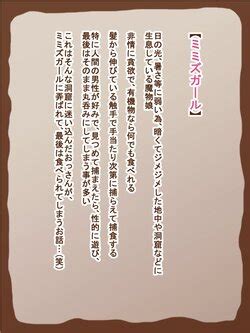 【ミミズガール】
日の光、暑さ等に弱い為、暗くてジメジメした地中や洞窟などに
生息している魔物娘
非常に貪欲で、有機物なら何でも食べれる
髪から伸びている触手で手当たり次第に捕らえて捕食する
特に人間の男性が好みで、見つめて捕まえたら、性的に遊び、
最後はそのまま丸呑みにしてしまう事が多い
これはそんな洞窟に迷い込んだおっさんが、
ミミズガールに弄ばれて、最後は食べられてしまうお話…(笑)